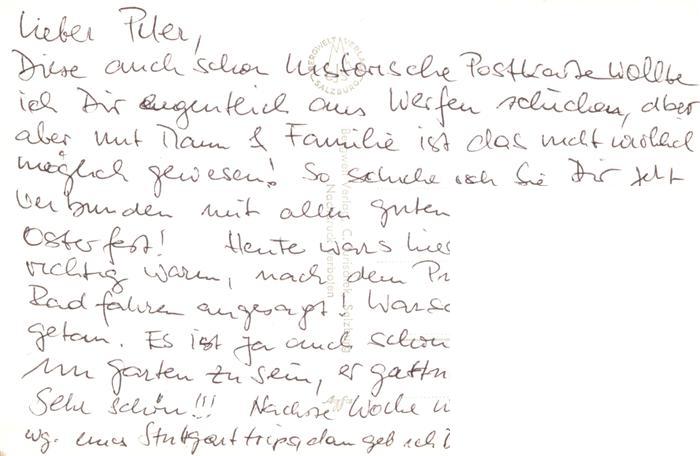 Lieber Peter,
Diese auch schon historische Postkarte wollte
ich Dir eigentlich aus Werfen schicken, aber
aber mit Mann & Familie ist das nicht wirklich
möglich gewesen! So schicke ich Sie Dir jetzt
verbunden mit allen guten
Osterfest! Heute wars hier
richtig warm, nach dem
Rad fahren angesagt!
getan. Es ist ja auch schon
im Garten zu sein, er
Sehr schön!!! Nächste Woche
wg. eines Stuttgarttrips, dann geb ich
BERGWELT VERLAG
SALZBURG
Bergwelt-Verlag C. Jurischek, Salzburg
Nachdruck verboten